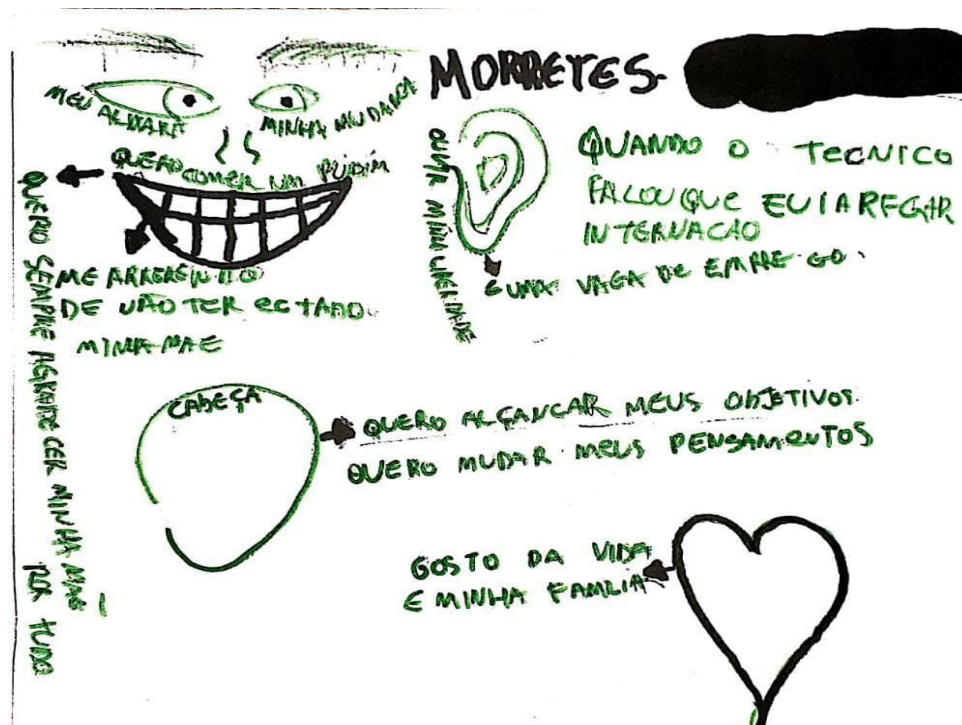 MORRETES-
MEU ALVARÁ
MINHA MUDANÇA
QUERO COMER UM PUDIM
QUERO SEMPRE AGRADECER MINHA MÃE
POR TUDO
ME ARREPENDO
DE NÃO TER
MINHA MÃE
OUVIR MINHA LIBERDADE
QUANDO O TECNICO
FALOU QUE EU IA PEGAR
INTERNACAO
E UMA VAGA DE EMPREGO.
CABEÇA
QUERO ALÇANCAR MEUS OBJETIVOS.
QUERO MUDAR MEUS PENSAMENTOS
GOSTO DA VIDA
E MINHA FAMLIA